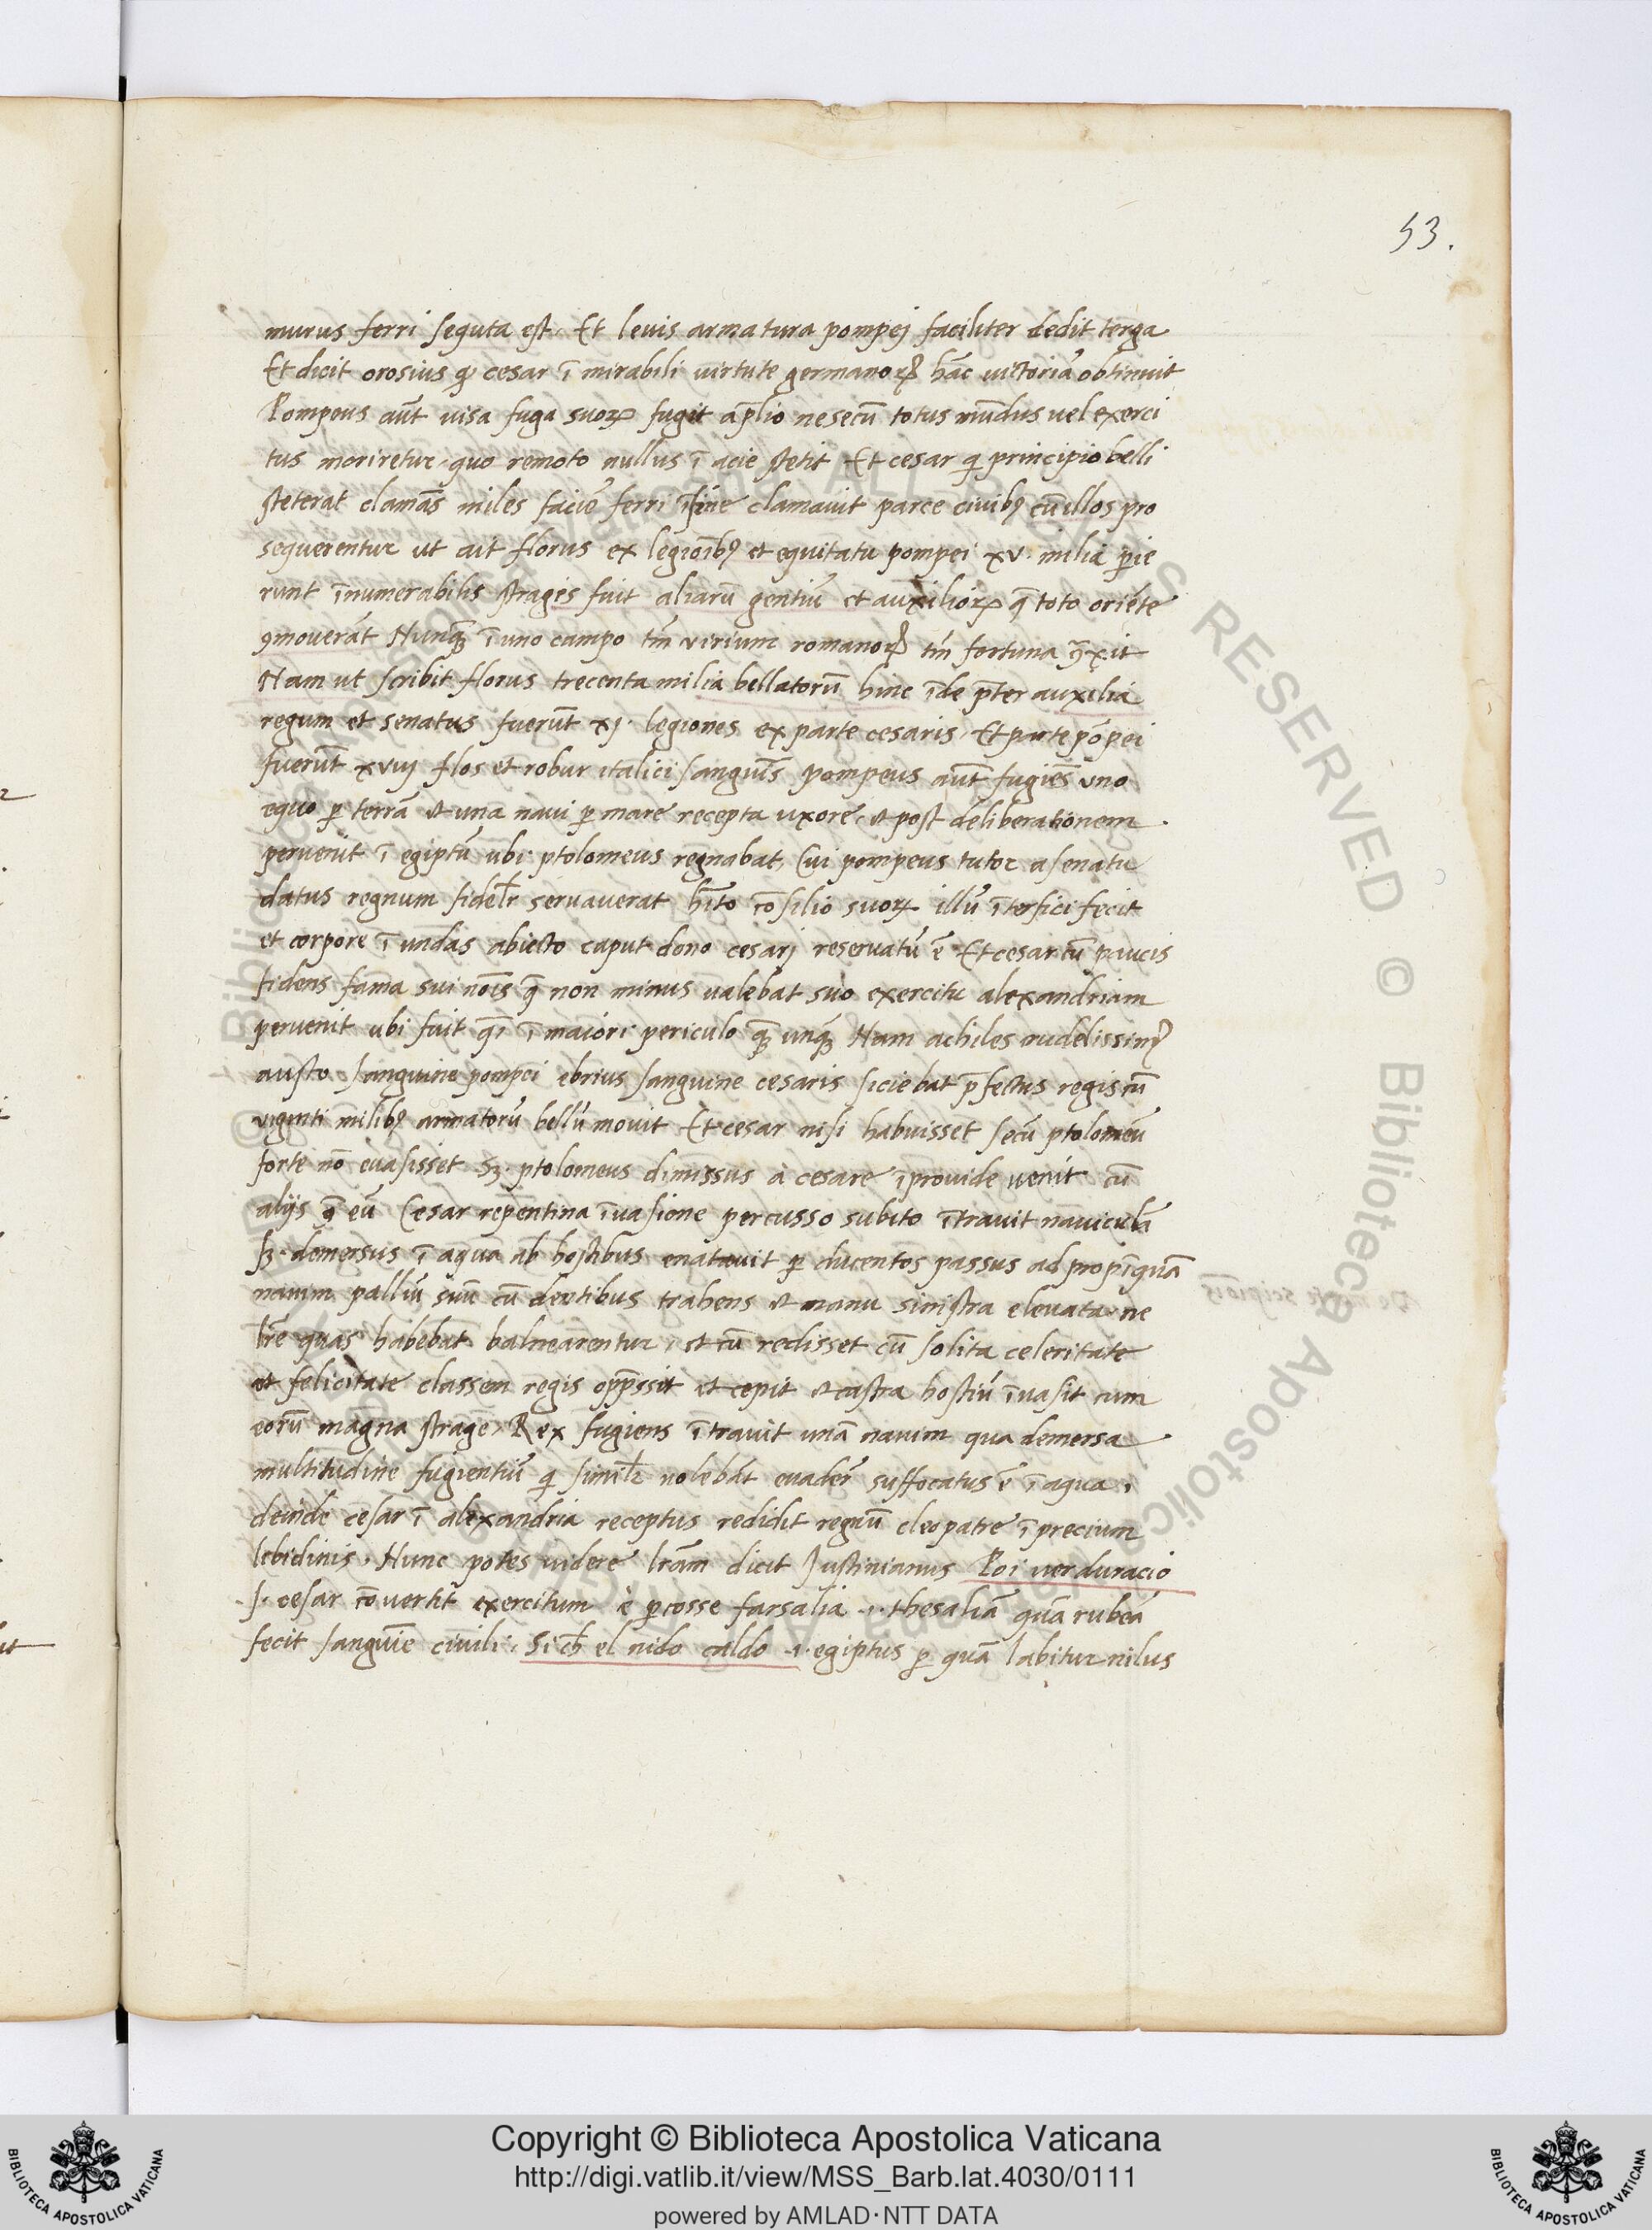 53.
murus ferri seguta est. Et leuis armatura pompej faciliter dedit terga
Et dicit orosius qͥ cesar ī mirabili uirtute germanoꝝ hāc uictoriā obtinuit
Pompeus aūt uisa fuga suoꝝ fugit ap̄lio ne secū totus mūdus uel exerci
tus moriretur. quo remoto nullus ī acie stetit Et cesar qͥ principio belli
steterat clamās miles facie ferri clamauit parce ciuibꝰ cū illos pro
sequerentur ut ait florus ex legioībꝰ et equitatu pompei xv. milia ꝑie
runt īnumerabilis strages fuit aliarū gentiū et auxilioꝝ q̄ toto oriēte
ꝯmouerāt Nunqꝫ ī uno campo tm̄ virium romanoꝝ tm̄ fortuna
Nam ut scribit florus trecenta milia bellatorū hinc īde p̄ter auxilia
regum et senatus fuerūt xj. legiones ex parte cesaris. Et parte pōpei
fuerūt xviij flos et robur italici sanguīs pompeus aūt fugiēs uno
equo ꝑ terrā & una naui ꝑ mare recepta uxore. & post deliberationem.
peruenit ī egiptū ubi ptolomeus regnabat, Cui pompeus tutor a senatu
datus regnum fidelr̄ seruauerat hīto cōsilio suoꝝ illū īterfici fecit
et corpore ī undas abiecto caput dono cesarj reseruatū ē Et cesar cū paucis
fidens fama sui noīs q̄ non minus ualebat suo exercitu alexandriam
peruenit ubi fuit qͣi ī maiori periculo qꝫ unqꝫ Nam achiles rudelissimꝰ
austo sanguine pompei ebrius sanguine cesaris siciebat p̄fectus regis cū
uiginti milibꝰ armatorū bellū mouit Et cesar nisi habuisset secū ptolomeū
forte nō euasisset Sꝫ. ptolomeus dimissus à cesare īprouide uenit cū
alijs ꝗ̄ eū Cesar repentina īuasione percusso subito ītrauit nauiculā
sꝫ. demersus ī aqua ab hostibus enatauit ꝑ ducentos passus ad propīquā
nauim palliū suū cū dentibus trahens & manu sinistra eleuata ne
lr̄e quas habebat balnearentur, et cū redisset cū solita celeritate
et felicitate classem regis opp̄ssit & cepit & castra hostiū īuasit cum
eorū magna strage. Rex fugiens ītrauit unā nauim qua demersa
multitudine fugientiū qͥ similr̄ uolebāt euader̄ suffocatus ē ī aqua,
deinde cesar ī alexandria receptus redidit regnū cleopatre ī precium
lebidinis. Nunc potes uidere lr̄am dicit Justinianus Poi uer duracio
.s. cesar cōuertit exercitum è ꝑcosse farsalia .i. thesaliā quā rubeā
fecit sanguīe ciuili. Si ch̄ el nido caldo .i. egiptus ꝑ quā labitur nilus
Copyright © Biblioteca Apostolica Vaticana
http://digi.vatlib.it/view/MSS_Barb.lat.4030/0111
powered by AMLAD·NTT DATA
BIBLIOTECA APOSTOLICA VATICANA
BIBLIOTECA APOSTOLICA VATICANA